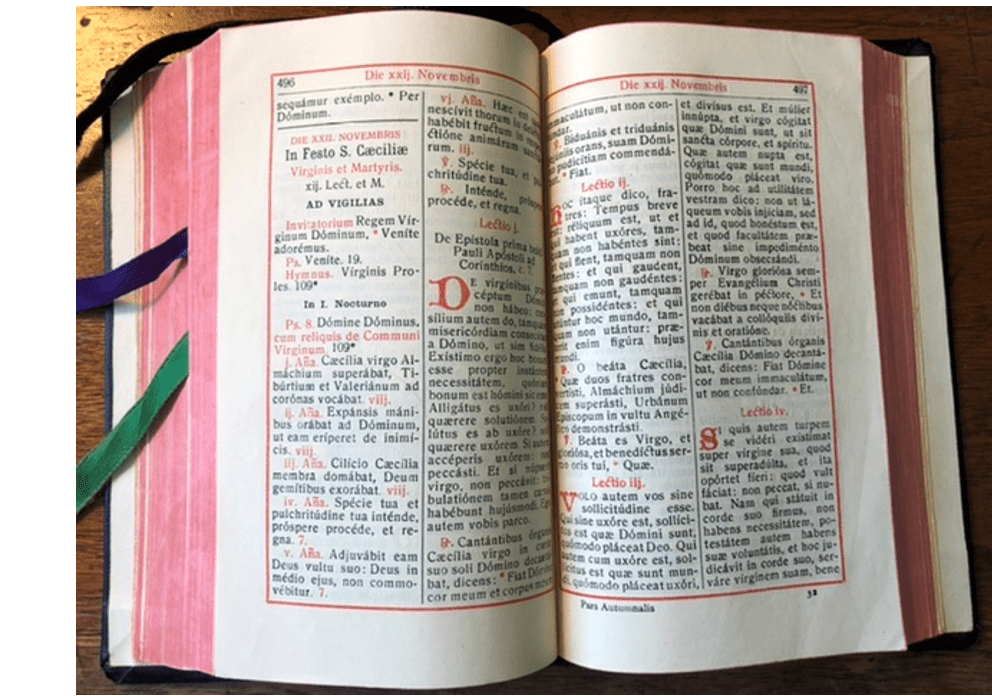 496
Die xxij. Novembris
sequámur exémplo. * Per
Dóminum.
DIE XXII. NOVEMBRIS
In Festo S. Cæciliæ
Virginis et Martyris.
xij. Lect. et M.
AD VIGILIAS
Invitatorium Regem Vir-
ginum Dóminum, * Veníte
adorémus.
Ps. Veníte. 19.
Hymnus. Vírginis Pro-
les. 109*
In I. Nocturno
Ps. 8. Dómine Dóminus,
cum reliquis de Communi
Virginum 109*
j. Aña. Cæcília virgo Al-
máchium superábat, Ti-
búrtium et Valeriánum ad
corónas vocábat. viij.
ij. Aña. Expánsis máni-
bus orábat ad Dóminum,
ut eam eríperet de inimí-
cis. viij
iij. Aña. Cilício Cæcília
membra domábat, Deum
gemítibus exorábat. viij.
iv. Aña. Spécie tua et
pulchritúdine tua inténde,
próspere procéde, et re-
gna. 7.
v. Aña. Adjuvábit eam
Deus vultu suo: Deus in
médio ejus, non commo-
vébitur. 7.
vj. Aña. Hæc est
nescívit thorum in
habébit fructum in
ctióne animárum
rum. iij.
℣. Spécie tua, et
chritúdine tua.
℟. Inténde,
procéde, et regna.
Lectio j.
De Epístola prima
Pauli Apóstoli ad
Corínthios. c. 7.
DE virgínibus
céptum
non hábeo:
sílium autem do, tamquam
misericórdiam
a Dómino, ut sim
Exístimo ergo hoc bonum
esse propter instántem
necessitátem, quóniam
bonum est hómini sic
Alligátus es uxóri?
quærere solutiónem.
lútus es ab uxóre?
quærere uxórem. Si autem
accéperis uxórem: non
peccásti. Et si
virgo, non peccávit:
bulatiónem tamen carnis
habébunt hujúsmodi. Ego
autem vobis parco.
℟. Cantántibus órganis
Cæcília virgo in corde
suo soli Dómino
bat, dicens: * Fiat
cor meum et corpus meum
Die xxij. Novembris
497
immaculátum, ut non con-
fúndar.
℣. Biduánis et triduánis
jejúniis orans, suam Dómi-
no pudicítiam commendá-
bat. * Fiat.
Lectio ij.
Hoc ítaque dico, fra-
tres: Tempus breve
est: réliquum est, ut et
qui habent uxóres, tam-
quam non habéntes sint:
et qui flent, tamquam non
flentes: et qui gaudent,
tamquam non gaudéntes:
et qui emunt, tamquam
non possidéntes: et qui
utúntur hoc mundo, tam-
quam non utántur: præ-
terit enim figúra hujus
mundi.
℟. O beáta Cæcília,
* Quæ duos fratres con-
vertísti, Almáchium júdi-
cem superásti, Urbánum
Episcopum in vultu Angé-
lico demonstrásti.
℣. Beáta es Virgo, et
gloriósa, et benedíctus ser-
mo oris tui, * Quæ.
Lectio iij.
VOLO autem vos sine
sollicitúdine esse.
Qui sine uxóre est, sollíci-
tus est quæ Dómini sunt,
quómodo pláceat Deo. Qui
autem cum uxóre est, sol-
lícitus est quæ sunt mun-
di, quómodo pláceat uxóri,
et divísus est. Et múlier
innúpta, et virgo cógitat
quæ Dómini sunt, ut sit
sancta córpore, et spíritu.
Quæ autem nupta est,
cógitat quæ sunt mundi,
quómodo pláceat viro.
Porro hoc ad utilitátem
vestram dico: non ut lá-
queum vobis injíciam, sed
ad id, quod honéstum est,
et quod facultátem præ-
beat sine impediménto
Dóminum obsecrándi.
℟. Virgo gloriósa sem-
per Evangélium Christi
gerébat in péctore, * Et
non diébus neque nóctibus
vacábat a collóquiis diví-
nis et oratióne.
℣. Cantántibus órganis
Cæcília Dómino decantá-
bat, dicens: Fiat Dómine
cor meum immaculátum,
ut non confúndar. * Et.
Lectio iv.
Si quis autem turpem
se vidéri exístimat
super vírgine sua, quod
sit superadúlta, et ita
opórtet fíeri: quod vult
fáciat: non peccat, si nu-
bat. Nam qui státuit in
corde suo firmus, non
habens necessitátem, po-
testátem autem habens
suæ voluntátis, et hoc ju-
dicávit in corde suo, ser-
váre vírginem suam, bene
Pars Autumnalis
32